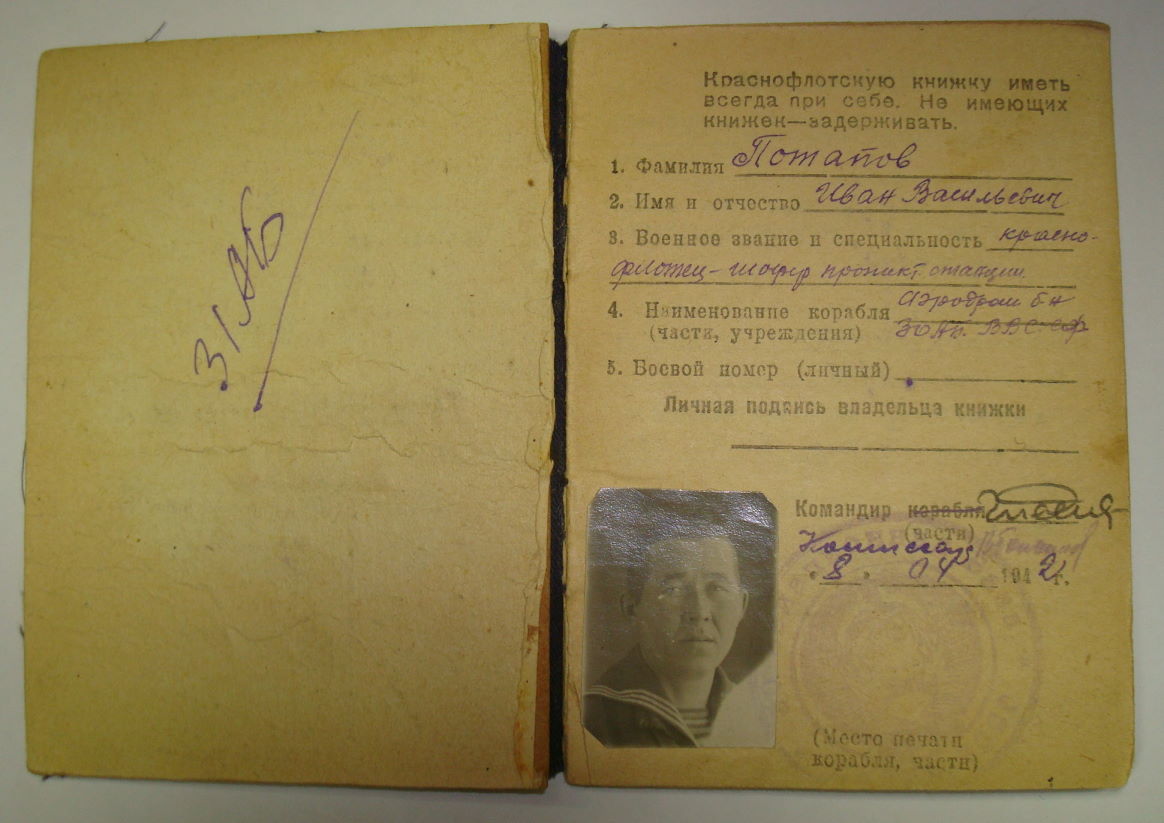 31 АБ
Краснофлотскую книжку иметь
всегда при себе. Не имеющих
книжек—задерживать.
1. Фамилия Потапов
2. Имя и отчество Иван Васильевич
3. Военное звание и специальность красно-
флотец - шофер прожект. станции
4. Наименование корабля Аэродром б-н
(части, учреждения) ВВС СФ
5. Боевой номер (личный)
Личная подпись владельца книжки
Командир корабля
(части)
Комиссар
"8" 04 1942 г.
(Место печати
корабля, части)